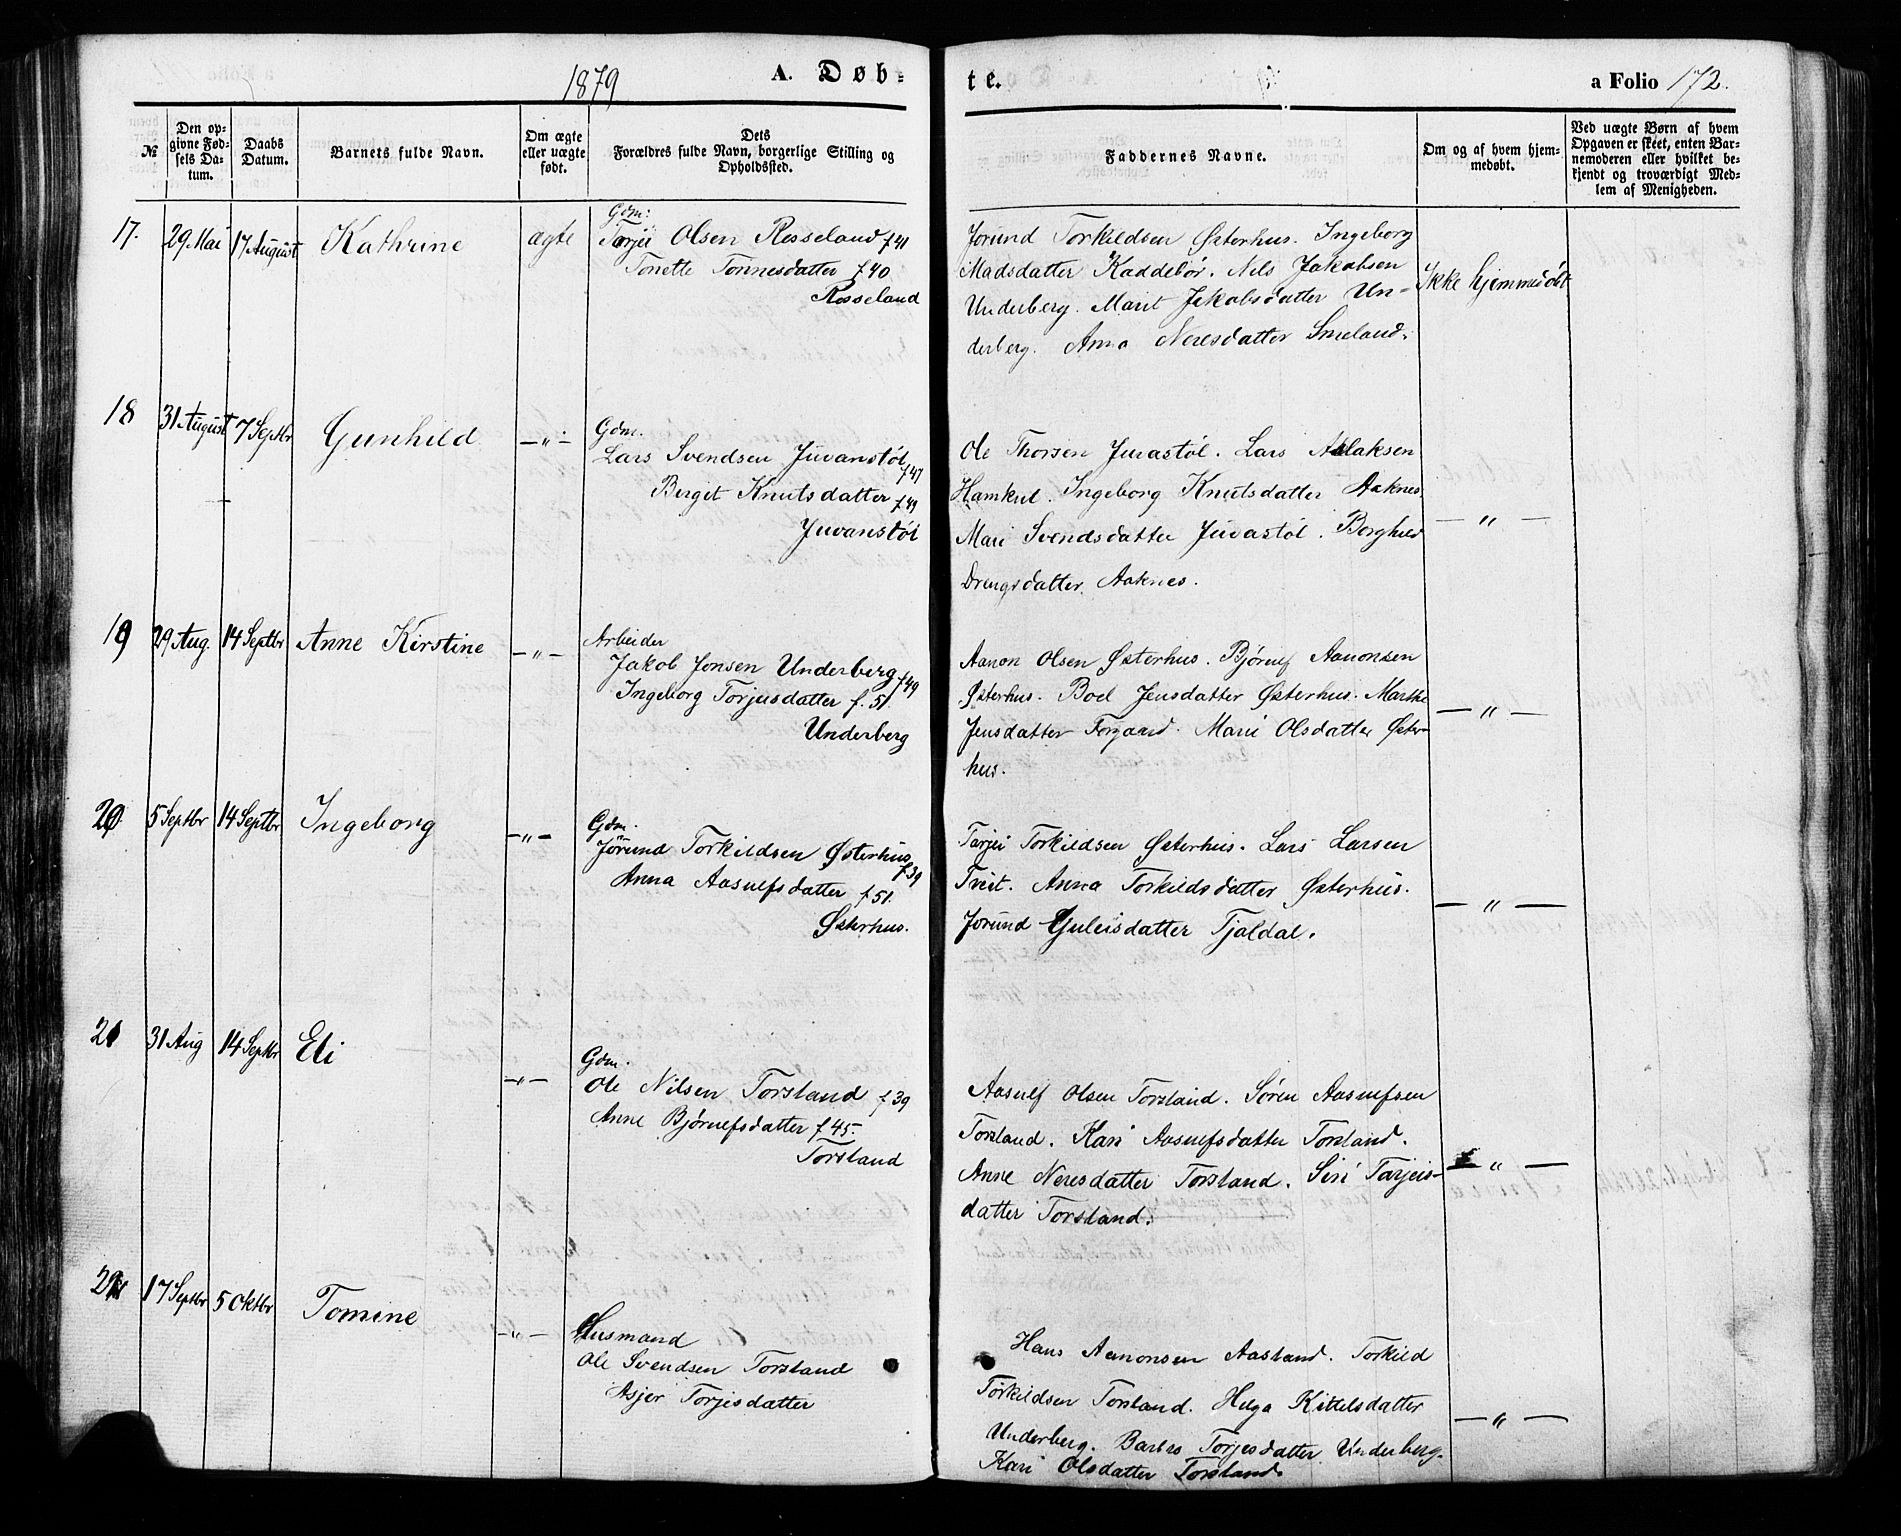 1879
A. Døb-
te.
a Folio 172.
№
Den op-
givne Fød-
sels Da-
tum.
Daabs
Datum.
Barnets fulde Navn.
Om ægte
eller uægte
født.
Dets
Forældres fulde Navn, borgerlige Stilling og
Opholdssted.
Faddernes Navne.
Om og af hvem hjem-
medøbt.
Ved uægte Børn af hvem
Opgaven er skeet, enten Bar-
nemoderen eller hvilket be-
kjendt og troværdigt Med-
lem af Menigheden.
17. 29 Mai 17 August Kathrine ægte
Gdm:
Tarjei Olsen Rosseland f 41
Tonette Tønnesdatter f 40
Rosseland
Jorund Torkildsen Østerhus. Ingeborg
Madsdatter Kaddebør. Nils Jakobsen
Underberg. Marit Jakobsdatter Un-
derberg. Anna Neresdatter Smeland.
Ikke hjemmedøbt
18 31 August 7 Septbr Gunhild — " —
Gdm.
Lars Svendsen Juvanstøl f 47
Berget Knutsdatter f 49
Juvanstøl
Ole Thorsen Juvastøl. Lars Aslaksen
Hamkul. Ingeborg Knutsdatter Aaknes.
Mari Svendsdatter Juvastøl. Borghild
Drengsdatter Aaknes.
— " —
19 29 Aug. 14 Septbr Anne Kirstine — " —
Arbeider
Jakob Jonsen Underberg f 49
Ingeborg Torjusdatter f. 51
Underberg
Aanon Olsen Østerhus. Bjørulf Aanonsen
Østerhus. Boel Jensdatter Østerhus. Marthe
Jensdatter Forgaard. Mari Olsdatter Øster-
hus.
— " —
20. 5 Septbr 14 Septbr Ingeborg — " —
Gdm.
Jørund Torkildsen Østerhus f 39
Anna Aasulfsdatter f 51.
Østerhus.
Tarjei Torkildsen Østerhus. Lars Larsen
Tveit. Anna Torkildsdatter Østerhus.
Jorund Guleisdatter Tjaldal.
— " —
21 31 Aug 14 Septbr Eli — " —
Gdm.
Ole Nilsen Torsland f 39
Anne Bjørulfsdatter f 45.
Torsland
Aasulf Olsen Torsland. Søren Aasulfsen
Torsland. Kari Aasulfsdatter Torsland.
Anne Neresdatter Torsland. Siri Tarjeis-
datter Torsland.
— " —
22 17 Septbr 5 Oktbr Tomine — " —
Husmand
Ole Svendsen Torsland
Asjer Torjesdatter
Hans Aanonsen Aasland. Torkild
Torkildsen Torsland. Helga Kittelsdatter
Underberg. Barbro Torjesdatter Underberg.
Kari Olsdatter Torsland.
— " —